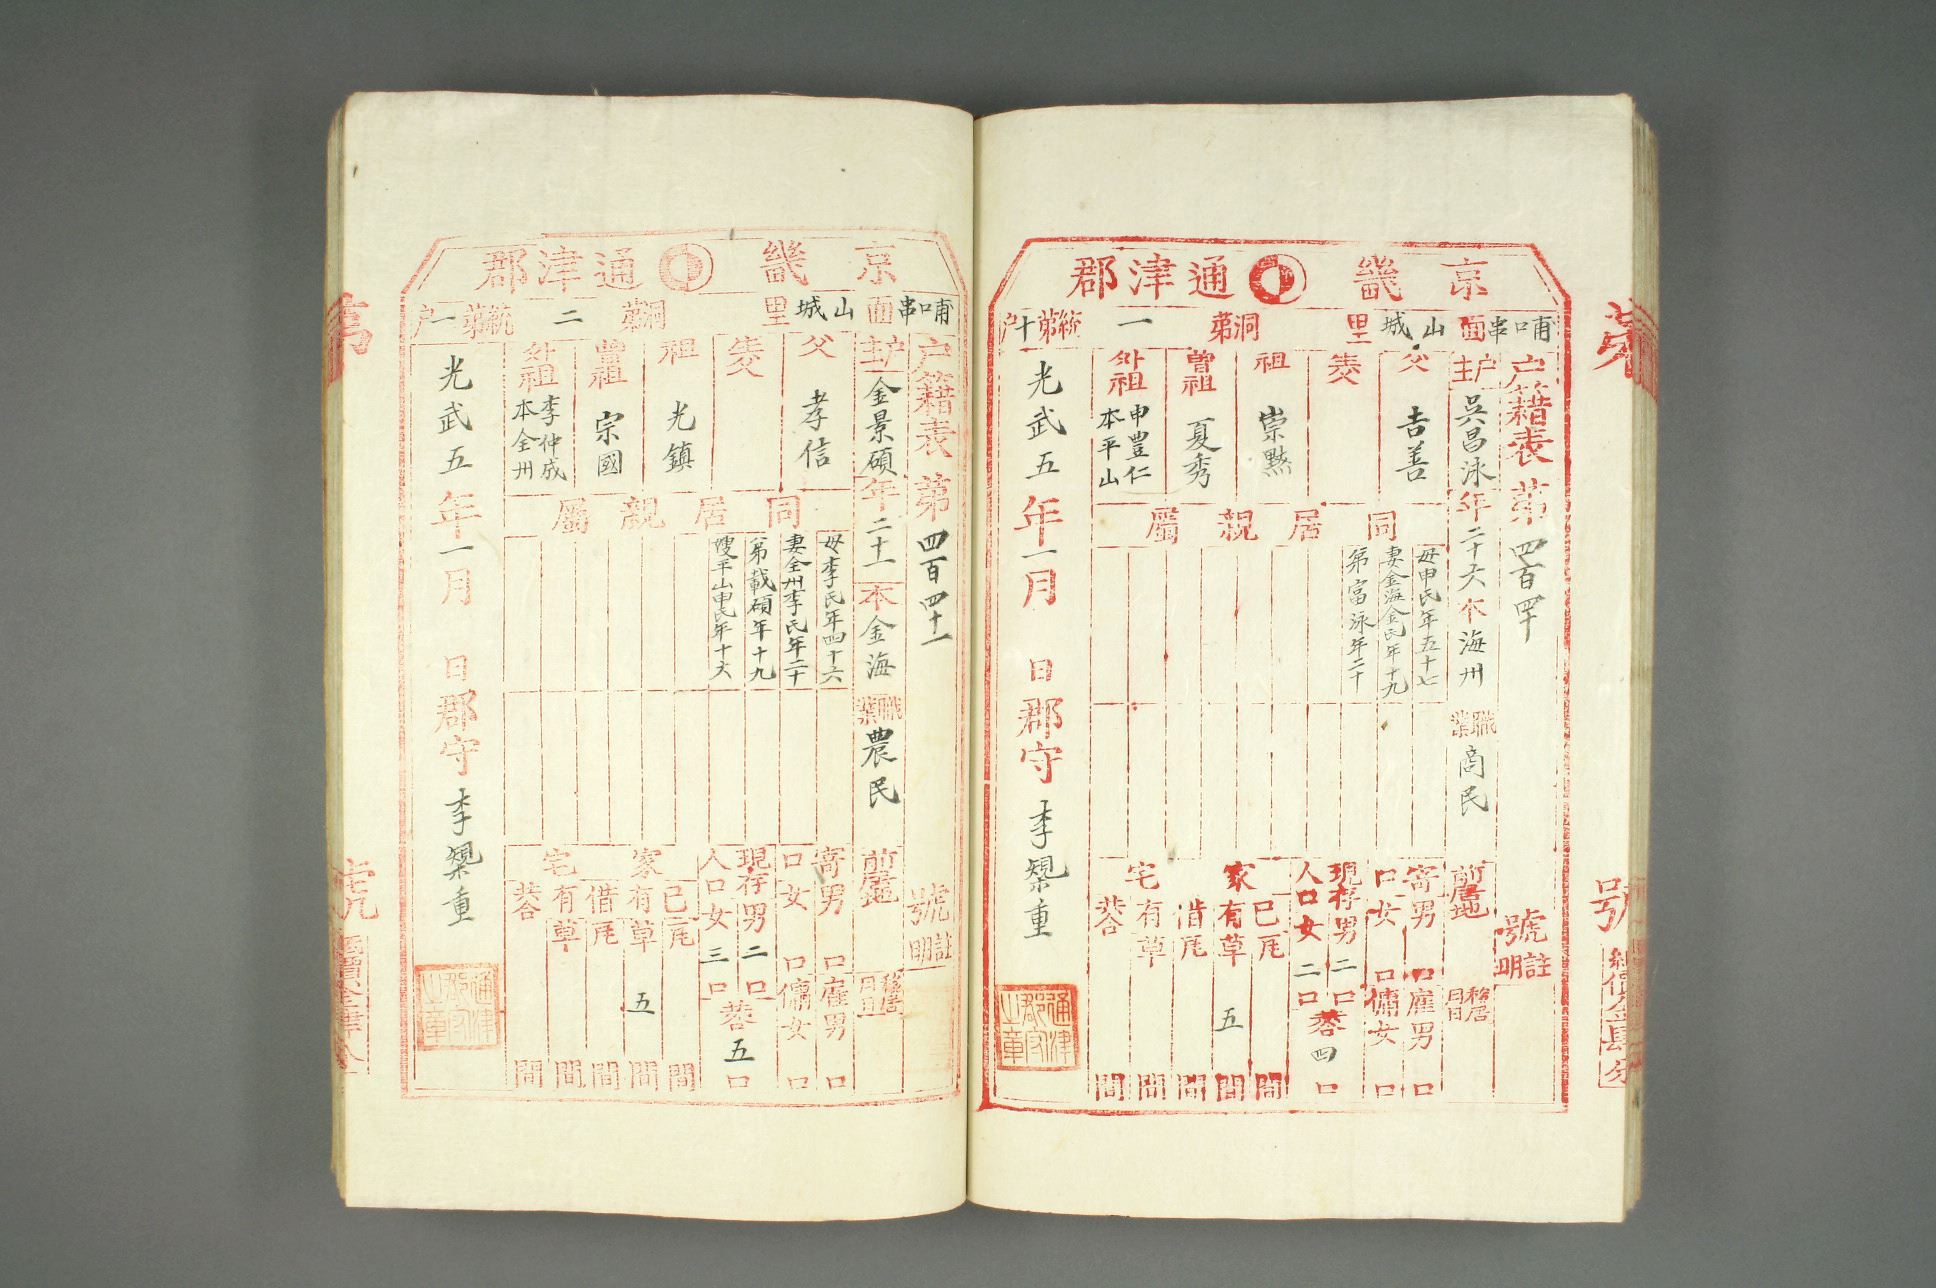 京畿 通津郡
哺口串面山城里 洞第一統第十戶
戶籍表第四百四十號
註明
戶主吳昌泳年二十六本海州職業商民
前居地
移居月日
父吉善
生父
祖崇黙
曾祖夏秀
外祖申豊仁本平山
同居親屬
母申氏年五十七
妻金海金氏年十九
弟富泳年二十
寄口男口女口
雇男口傭女口
現存人口男二口女二口共四口
家宅
己有瓦間
草五間
借有瓦間
草間
共合間
光武五年一月 日郡守李
重
通津郡守之章
號
京畿 通津郡
面山城里 洞第二統第一戶
戶籍表第四百四十一號
註明
戶主金景碩年二十一本金海職業農民
前居地
移居月日
父孝信
生父
祖光鎮
曾祖宗國
外祖李仲成本全州
同居親屬
母李氏年四十六
妻全州李氏年二十
弟載碩年十九
嫂平山申氏年十六
寄口男口女口
雇男口傭女口
現存人口男二口女三口共五口
家宅
己有瓦間
草五間
借有瓦間
草間
共合間
光武五年一月 日郡守李
重
通津郡守之章